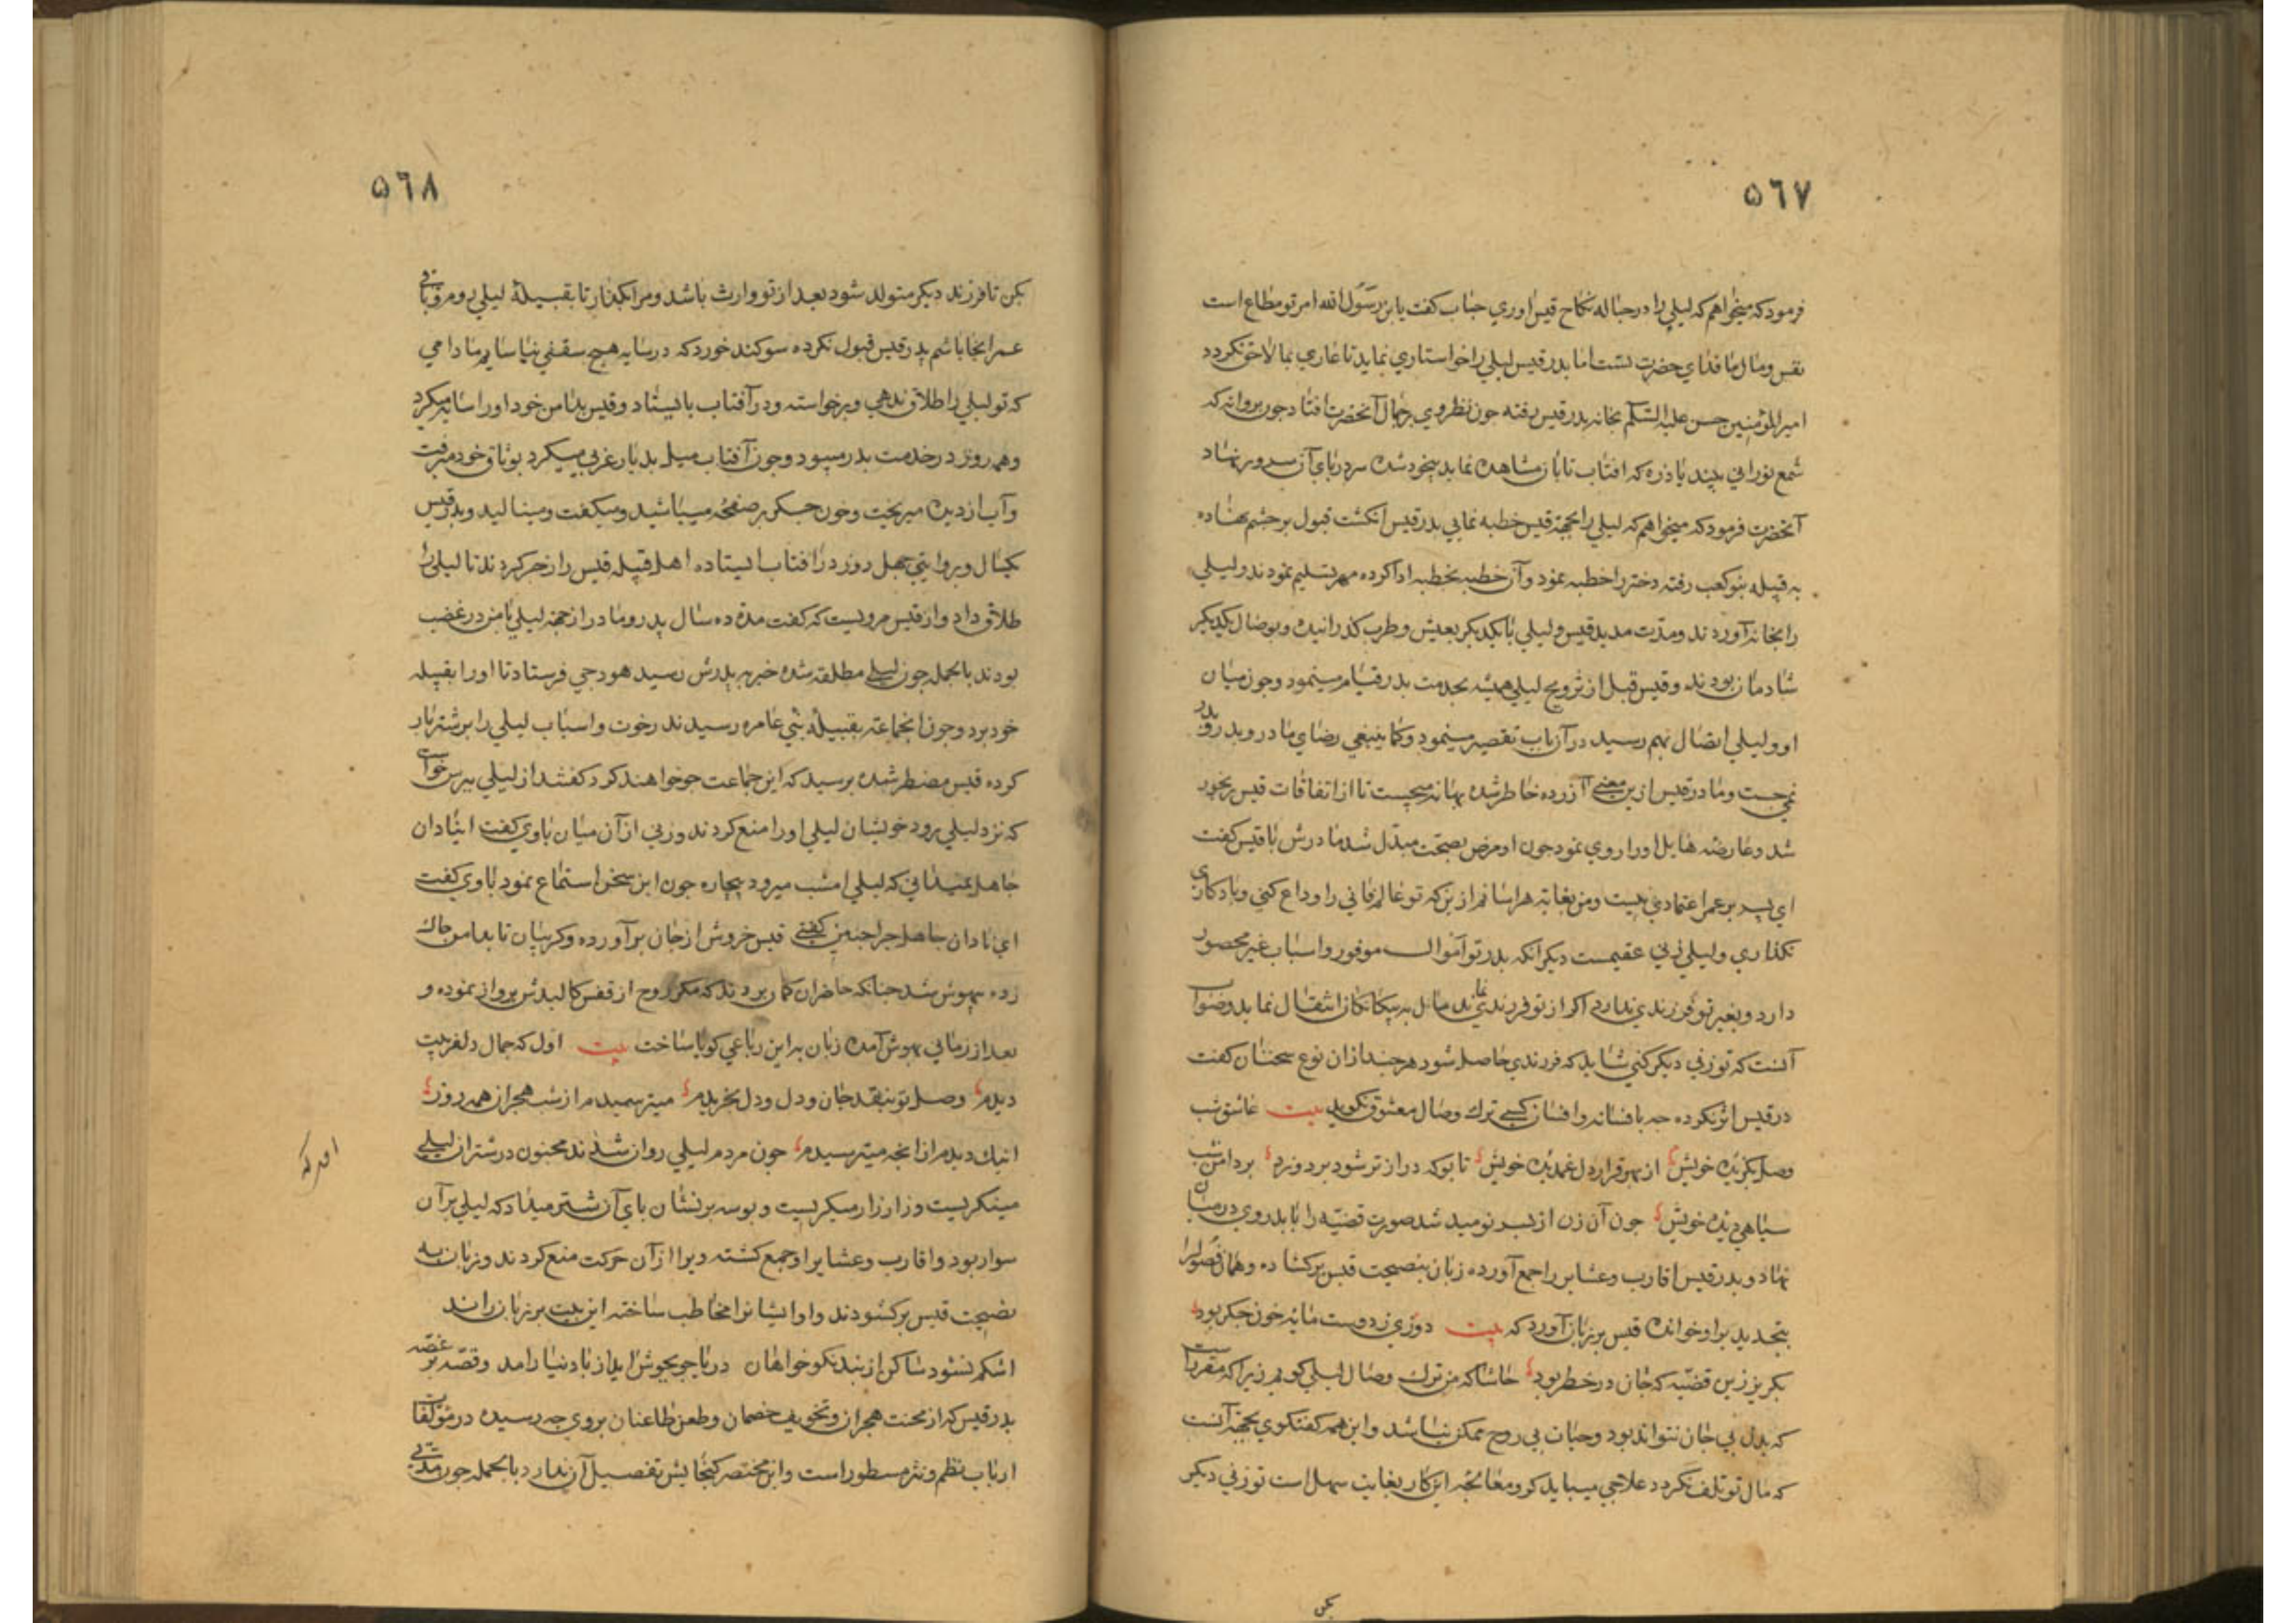 ۵٦٧
فرمود که میخواهم که لیلی را در حباله نکاح قیس اوری جناب کفت یابن رسول الله امر تو مطاع است
نفس و مال ما فدای حضرت تست اما پدر قیس لیلی را خواستاری نماید تا عاری بما لاحق نکردد
امیر المؤمنین حسن علیه السلام بخانه پدر قیس رفته جون نظر وی بر جمال آنحضرت افتاد جون پروانه که
شمع نورانی بیند یا ذره که افتاب تابان مشاهده نماید بیخود شده سر در پای آن سرور نهاد
آنحضرت فرمود که میخواهم که لیلی را بجهة قیس خطبه نمایی پدر قیس انکشت قبول بر جشم نهاده
به قبیله بنو کعب رفته دختر را خطبه نمود و آن خطبه بخطبه ادا کرده مهر تسلیم نمودند و لیلی
را بخانه آوردند و مدّت مدید قیس و لیلی با یکدیکر بعیش و طرب کذرانیده و بوصال یکدیکر
شادمان بودند و قیس قبل از تزویج لیلی همیشه بخدمت پدر قیام مینمود و جون میان
او و لیلی اتصال بهم رسید در آن باب تقصیر مینمود و کما ینبغی رضای مادر و پدر
نمی جست و مادر قیس ازین معنی آزرده خاطر شده بهانه میجست تا از اتفاقات قیس رنجور
شد و عارضه هایل او را روی نمود جون او مرض بصحّت مبدّل شد مادرش با قیس کفت
ای پسر بر عمر اعتمادی نیست و من بغایة هراسانم از ین که تو عالم فانی را وداع کنی و یادکاری
نکذاری و لیلی زنی عقیمست دیکر آنکه پدر تو آموال موفور و اسباب غیر محصور
دارد و بغیر تو فرزندی ندارد اکر از تو فرزندی نماند مال به بیکانکان انتقال نماید و صواب
آنست که تو زنی دیکر کنی شاید که فرزندی حاصل شود هرچند ازان نوع سخنان کفت
در قیس اثر نکرده چه بافسانه و افسان کسی ترک وصال معشوق نکوید بیت عاشق شب
وصل بکزیده خویش از بهر قرار دل غمدیده خویش تا بوکه دراز تر شود بر دوزد بر دامن شب
سیاهی دیده خویش جون آن زن از پسر نومید شد صورت قضیّه را با پدر وی درمیان
نهاد و پدر قیس اقارب و عشایر را جمع آورده زبان بنصیحت قیس برکشاده و همان فصول را
بتجدید برا و خوانده قیس بر زبان آورد که بیت دوری ز دوست مایه خون جکر بود
بکریز زین قضیّه که جان در خطر بود حاشا که من ترک وصال لیلی کویم زیرا که مقررست
که بدن بی جان نتواند بود و حیات بی روح ممکن نباشد و این همه کفتکوی بجهة آنست
که مال تو تلف نکردد علاجی میباید کرد و معالجه این کار بغایت سهل است تو زنی دیکر
بکن
۵٦٨
بکن تا فرزند دیکر متولد شود بعد از تو وارث باشد و مرا بکذار تا بقبیلهٔ لیلی روم و باقی
عمر انجا باشم پدر قیس قبول نکرده سوکند خورد که در سایه هیچ سقفی نیاسایم مادامی
که تو لیلی را طلاق ندهی و برخواسته و در آفتاب بایستاد و قیس بدامن خود او را سایه میکرد
و همه روز در خدمت پدر میبود و جون آفتاب میل بدیار غربی میکرد بوثاق خود میرفت
و آب از دیده میریخت و خون جکر بر صفحه میپاشید و میکفت و مینالید و پدر قیس
یکسال و بروایتی جهل روز در افتاب ایستاده اهل قبیله قیس را زجر کردند تا لیلی را
طلاق داد و از قیس مرویست که کفت مدة ده سال پدر و مادر از جهة لیلی با من در غضب
بودند بالجمله جون لیلی مطلقه شده خبر به پدرش رسید هودجی فرستاد تا او را بقبیله
خود برد و جون انجماعة بقبیلهٔ بنی عامره رسیدند رخوت و اسباب لیلی را بر شتر بار
کرده قیس مضطر شده پرسید که این جماعت جه خواهند کرد کفتند از لیلی بپرس خواست
که نزد لیلی رود خویشان لیلی او را منع کردند و زنی از آن میان با وی کفت ای نادان
جاهل نمیدانی که لیلی امشب میرود بیچاره جون این سخن استماع نمود با وی کفت
ای نادان جاهل چرا چنین کفتی قیس خروش از جان برآورده و کریبان تا بدامن چاک
زده بیهوش شد جنانکه حاضران کمان بردند که مکر روح از قفس کالبدش پرواز نموده و
بعد از زمانی بهوش آمده زبان به این رباعی کویا ساخت بیت اول که جمال دلفریبت
دیدم وصل تو بنقد جان و دل بخریدم میترسیدم از شب هجران همه روز
اینک دیدم از انچه میترسیدم جون مردم لیلی روان شدند مجنون در شتران لیلی
مینکریست و زار زار میکریست و بوسه بر نشان پای آن شتر میداد که لیلی بر آن
سوار بود و اقارب و عشایر او جمع کشته ویرا از آن حرکت منع کردند و زبان به
نصیحت قیس برکشودند و او ایشانرا مخاطب ساخته این بیت بر زبان راند
اشکم نشود ساکن از پند نکوخواهان دریا چو بجوش اید از باد نیارامد و قصّه پر غصّه
پدر قیس که از محنت هجران و تخویف خصمان و طعن طاعنان بروی جه رسیده در مؤلفات
ارباب نظم و نثر مسطور است و این مختصر کنجایش تفصیل آن ندارد بالجمله جون مدّتی